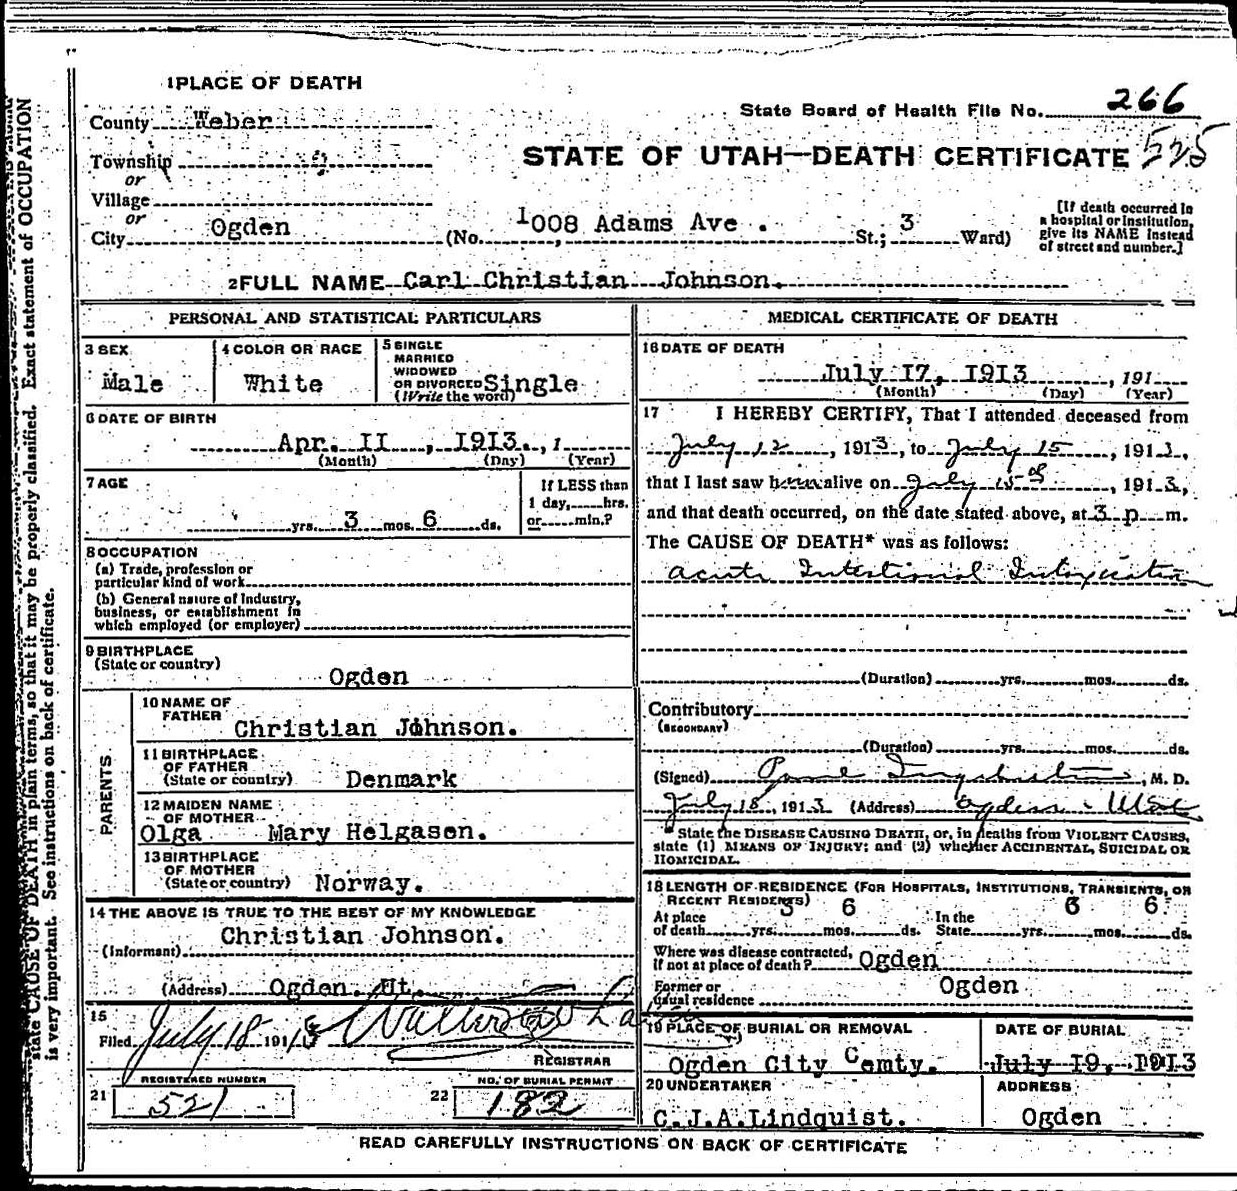 1 PLACE OF DEATH
State Board of Health File No. 266
County Weber
STATE OF UTAH—DEATH CERTIFICATE 525
Township
or
Village
or
City Ogden (No. 1008 Adams Ave . St.; 3 Ward)
[If death occurred in
a hospital or institution,
give its NAME instead
of street and number.]
2 FULL NAME Carl Christian Johnson.
PERSONAL AND STATISTICAL PARTICULARS
3 SEX
Male
4 COLOR OR RACE
White
5 SINGLE
MARRIED
WIDOWED
OR DIVORCED Single
(Write the word)
6 DATE OF BIRTH
Apr. II , I9I3. , 1
(Month) (Day) (Year)
7 AGE
yrs. 3 mos. 6 ds.
If LESS than
1 day, hrs.
or min.?
8 OCCUPATION
(a) Trade, profession or
particular kind of work
(b) General nature of industry,
business, or establishment in
which employed (or employer)
9 BIRTHPLACE
(State or country)
Ogden
PARENTS
10 NAME OF
FATHER
Christian Johnson.
11 BIRTHPLACE
OF FATHER
(State or country) Denmark
12 MAIDEN NAME
OF MOTHER
Olga Mary Helgasen.
13 BIRTHPLACE
OF MOTHER
(State or country) Norway.
14 THE ABOVE IS TRUE TO THE BEST OF MY KNOWLEDGE
(Informant) Christian Johnson.
(Address) Ogden. Ut.
15
Filed July 18 1913
REGISTRAR
REGISTERED NUMBER
21 521
NO. OF BURIAL PERMIT
22 182
MEDICAL CERTIFICATE OF DEATH
16 DATE OF DEATH
July I7, I9I3 , 191
(Month) (Day) (Year)
17 I HEREBY CERTIFY, That I attended deceased from
July 12 , 1913, to July 15 , 1913,
that I last saw him alive on July 15 , 1913,
and that death occurred, on the date stated above, at 3 p m.
The CAUSE OF DEATH* was as follows:
Acute Intestional Intoxication
(Duration) yrs. mos. ds.
Contributory
(SECONDARY)
(Duration) yrs. mos. ds.
(Signed) , M. D.
July 18, 1913 (Address) Ogden - Utah
* State the DISEASE CAUSING DEATH, or, in deaths from VIOLENT CAUSES,
state (1) MEANS OF INJURY; and (2) whether ACCIDENTAL, SUICIDAL OR
HOMICIDAL.
18 LENGTH OF RESIDENCE (FOR HOSPITALS, INSTITUTIONS, TRANSIENTS, OR
RECENT RESIDENTS)
At place of death yrs. 3 mos. 6 ds. In the State yrs. 3 mos. 6 ds.
Where was disease contracted,
If not at place of death? Ogden
Former or
usual residence Ogden
19 PLACE OF BURIAL OR REMOVAL
Ogden City Cemty.
DATE OF BURIAL
July I9, I9I3
20 UNDERTAKER
C.J.A.Lindquist.
ADDRESS
Ogden
READ CAREFULLY INSTRUCTIONS ON BACK OF CERTIFICATE
state CAUSE OF DEATH in plain terms, so that it may be properly classified. Exact statement of OCCUPATION
is very important. See instructions on back of certificate.